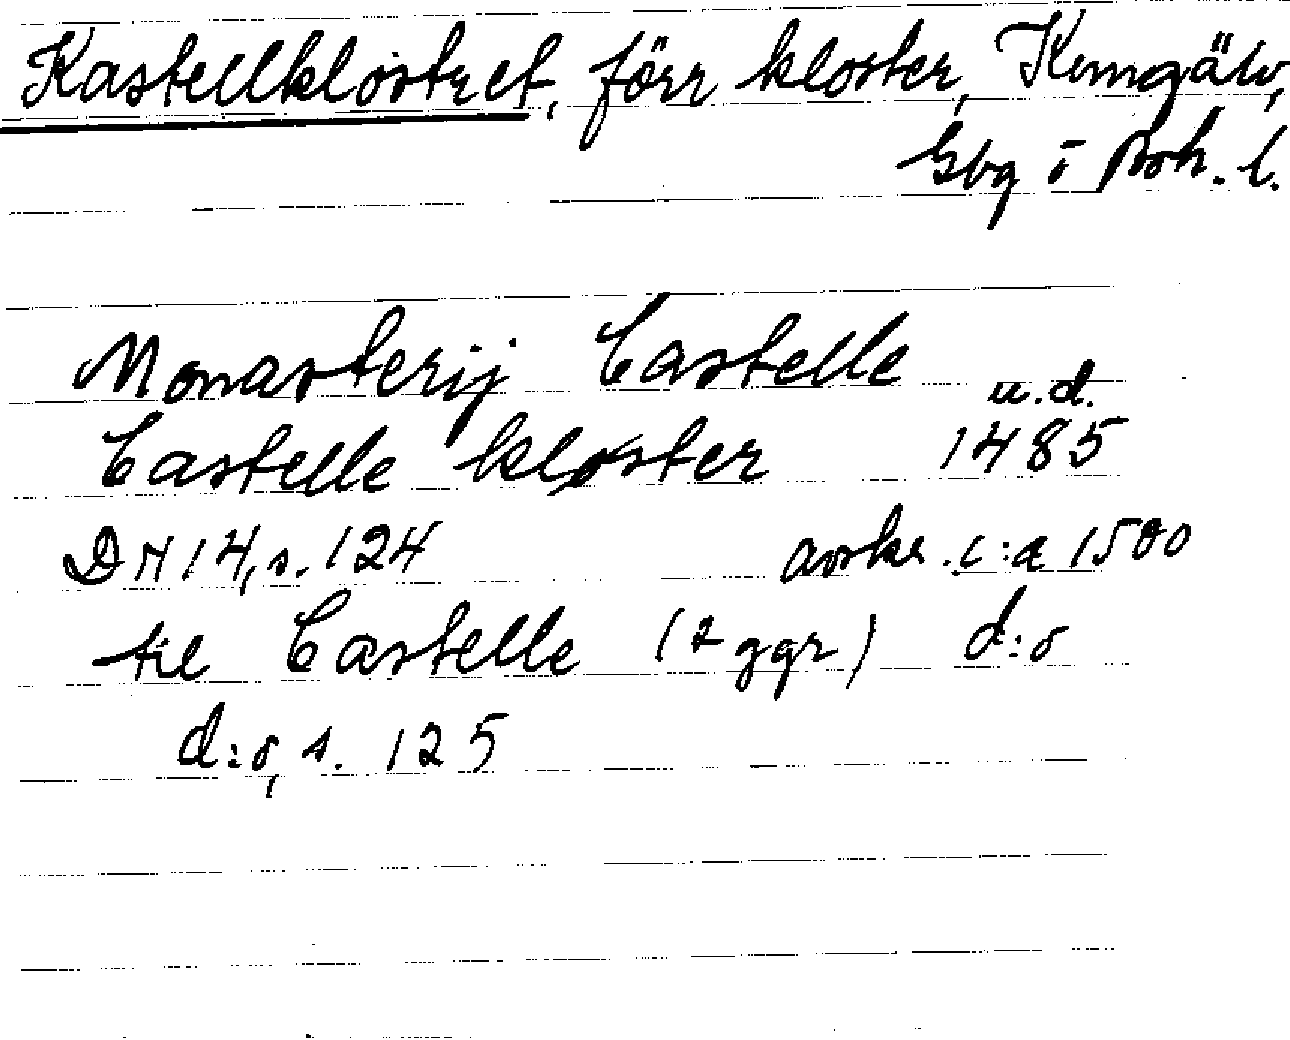 Kastellklostret, förr kloster, Kungälv,
Gbg o Boh. l.
Monasterij Castelle
u.d.
Castelle kloster 1485
DN 14, s. 124 avskr. c:a 1500
til Castelle (2 ggr) d:o
d:o, s. 125